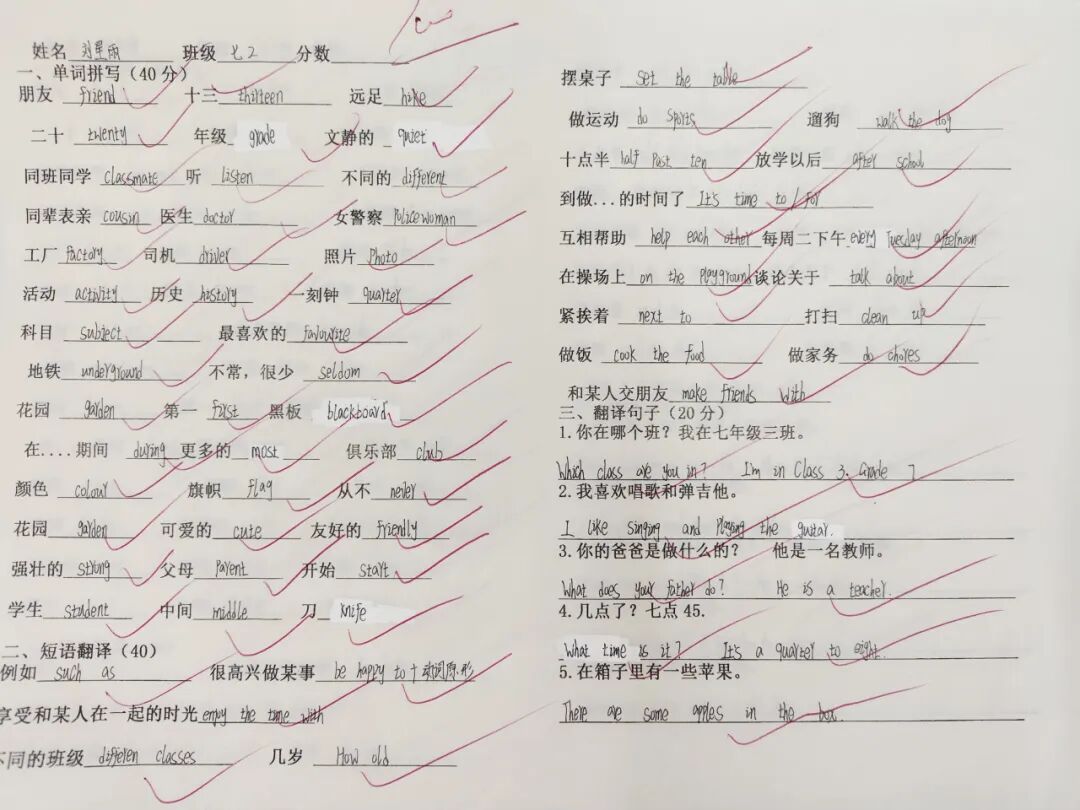 姓名 刘星雨 班级 七2 分数
一、单词拼写（40分）
朋友 friend 十三 thirteen 远足 hike
二十 twenty 年级 grade 文静的 quiet
同班同学 classmate 听 listen 不同的 different
同辈表亲 cousin 医生 doctor 女警察 Policewoman
工厂 factory 司机 driver 照片 Photo
活动 activity 历史 history 一刻钟 quarter
科目 subject 最喜欢的 favourite
地铁 underground 不常，很少 seldom
花园 garden 第一 first 黑板 blackboard
在....期间 during 更多的 most 俱乐部 club
颜色 colour 旗帜 flag 从不 never
花园 garden 可爱的 cute 友好的 friendly
强壮的 strong 父母 Parent 开始 start
学生 student 中间 middle 刀 knife
二、短语翻译（40）
例如 such as 很高兴做某事 be happy to + 动词原形
享受和某人在一起的时光 enjoy the time with
不同的班级 differen classes 几岁 How old
摆桌子 set the table
做运动 do sports 遛狗 walk the dog
十点半 half Past ten 放学以后 after school
到做...的时间了 It's time to / for
互相帮助 help each other 每周二下午 every Tuesday afternoun
在操场上 on the Playground 谈论关于 talk about
紧挨着 next to 打扫 clean up
做饭 cook the food 做家务 do chores
和某人交朋友 make friends with
三、翻译句子（20分）
1.你在哪个班？我在七年级三班。
Which class are you in? I'm in Class 3. Grade 7
2.我喜欢唱歌和弹吉他。
I like singing and Playing the guitar.
3.你的爸爸是做什么的？ 他是一名教师。
What does your father do? He is a teacher.
4.几点了？七点45.
What time is it? It's a quarter to eight.
5.在箱子里有一些苹果。
There are some apples in the box.